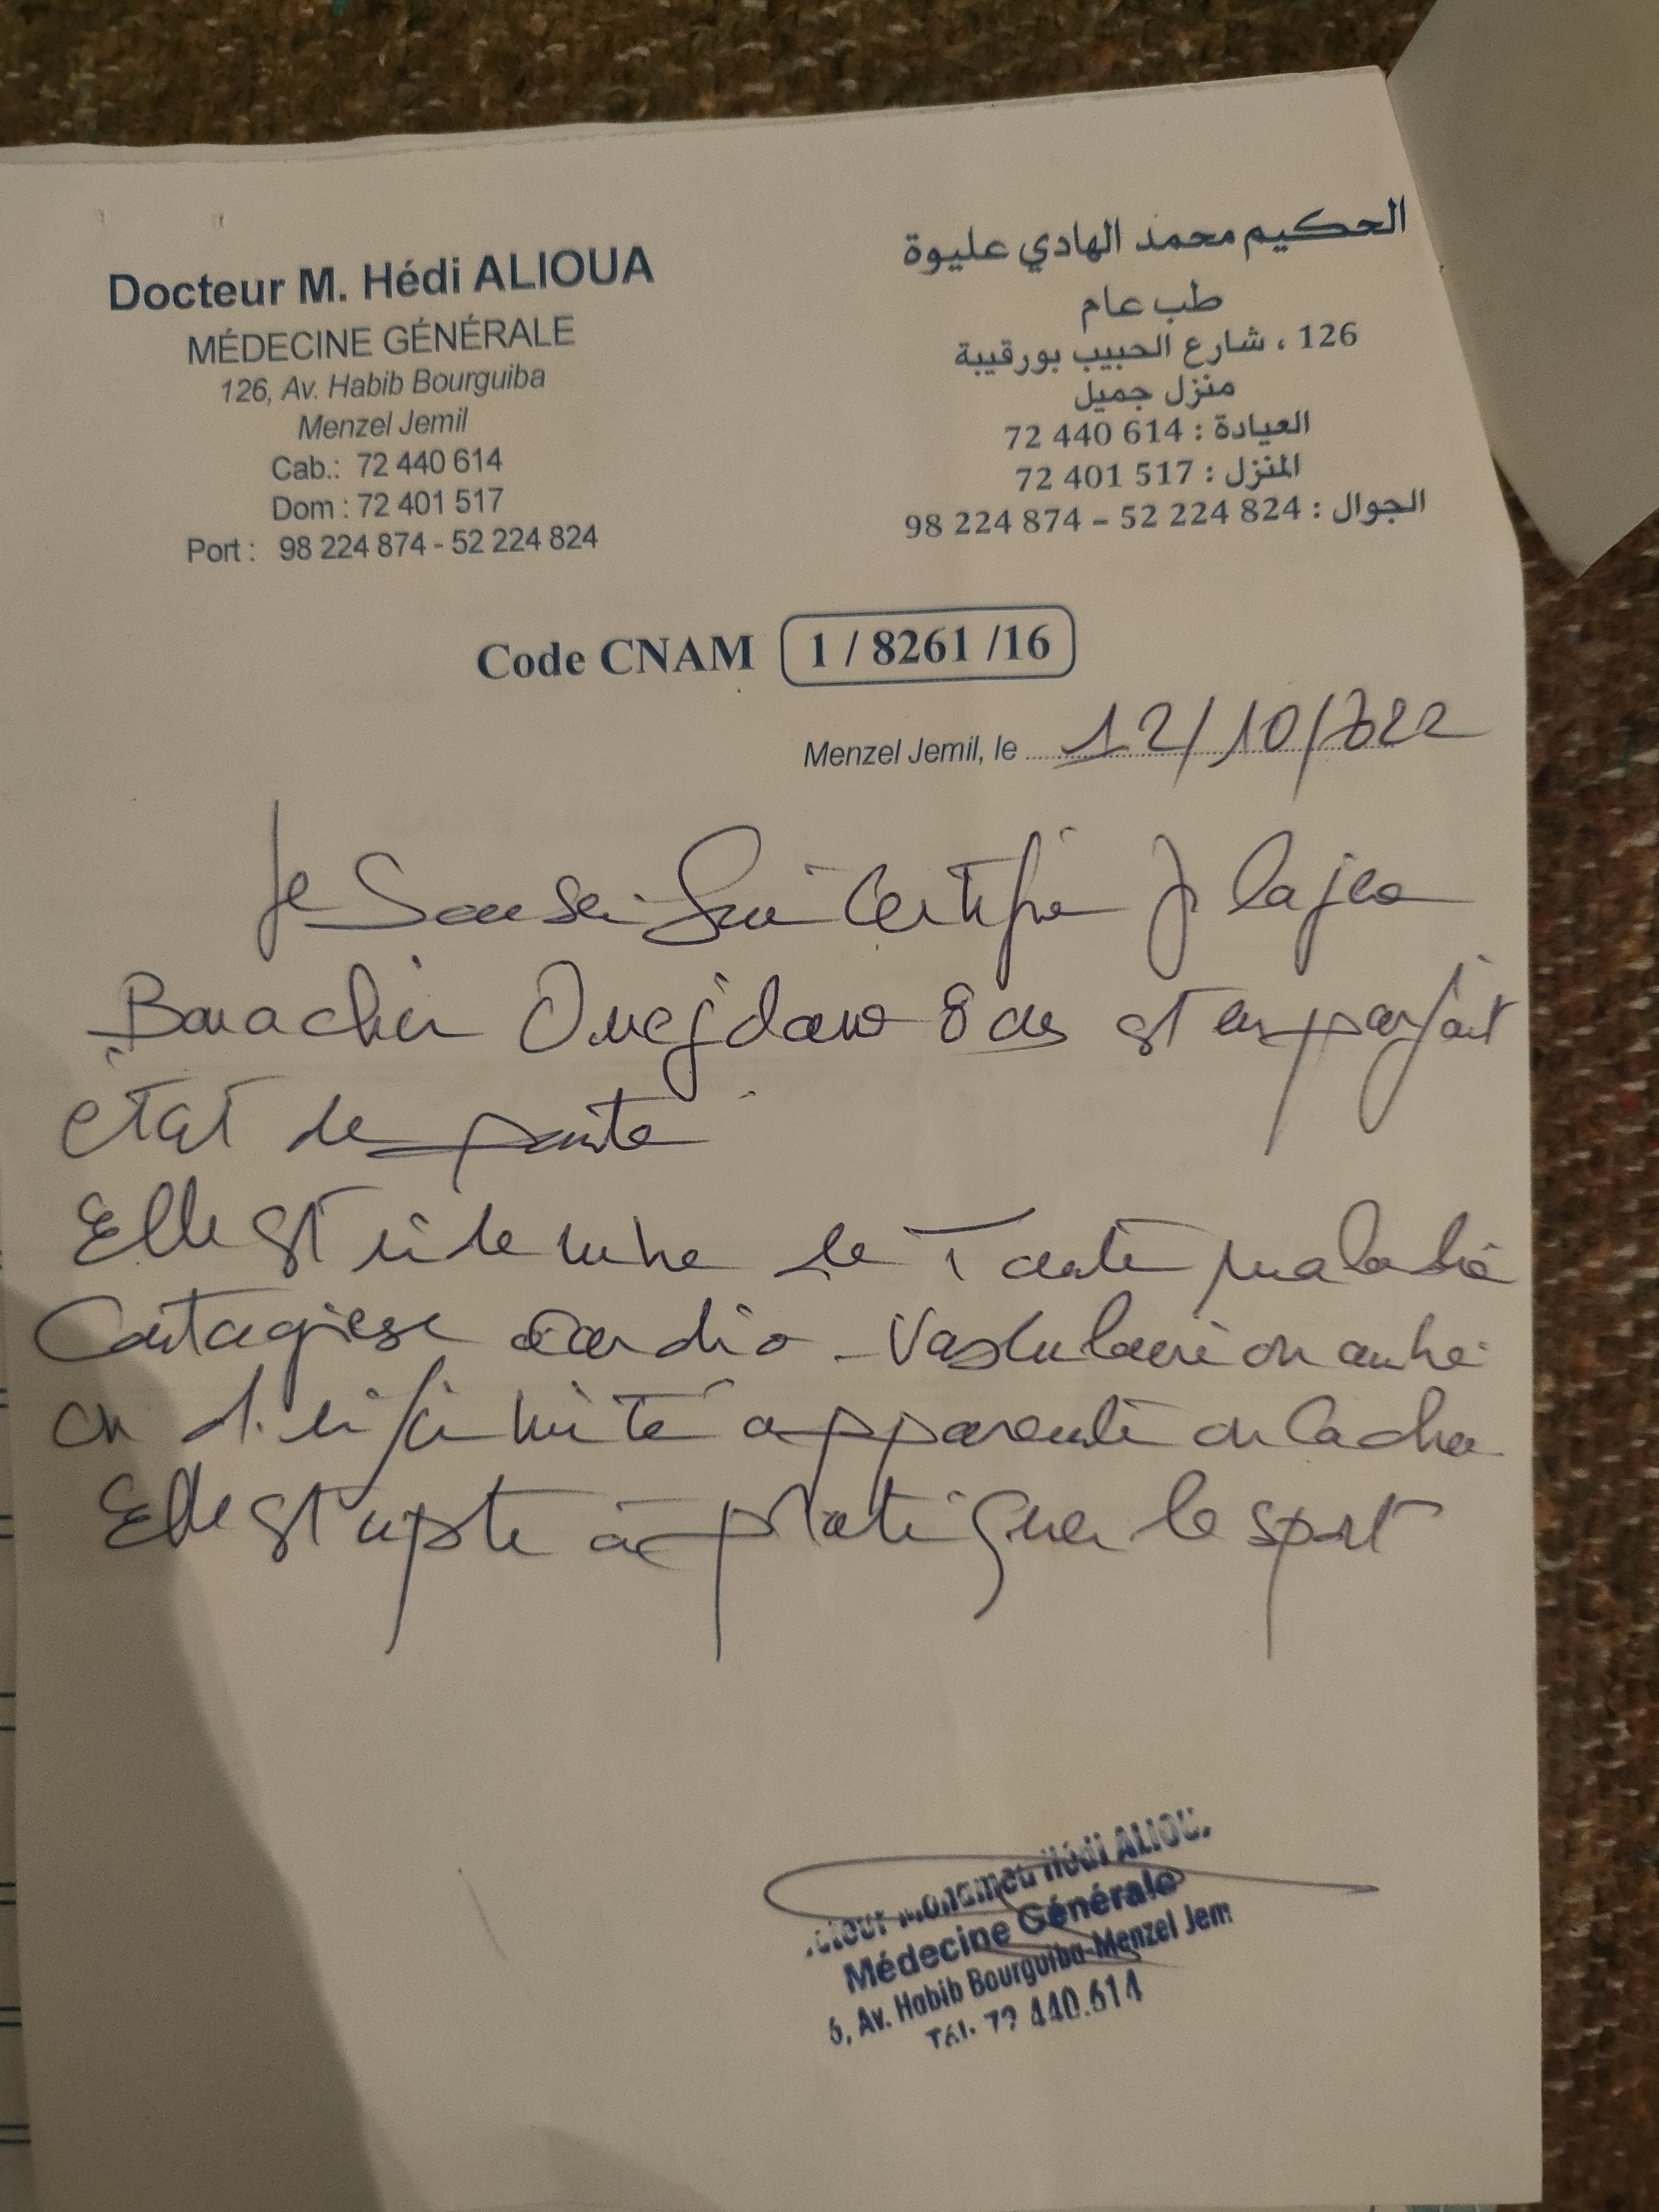 Docteur M. Hédi ALIOUA
MÉDECINE GÉNÉRALE
126, Av. Habib Bourguiba
Menzel Jemil
Cab.: 72 440 614
Dom : 72 401 517
Port : 98 224 874 - 52 224 824
الحكيم محمد الهادي عليوة
طب عام
126 ، شارع الحبيب بورقيبة
منزل جميل
العيادة : 614 440 72
المنزل : 517 401 72
الجوال : 824 224 52 – 874 224 98
Code CNAM 1 / 8261 /16
Menzel Jemil, le 12/10/2022
Je certifie
8 ans est en parfait
état de santé
Elle est indemne de toute maladie
contagieuse cardio-vasculaire ou autre
ou d'infirmité apparente ou cachée
Elle est apte à pratiquer le sport
Hédi ALIOU
Médecine Générale
6, Av. Habib Bourguiba-Menzel Jem
Tél. 72 440.614